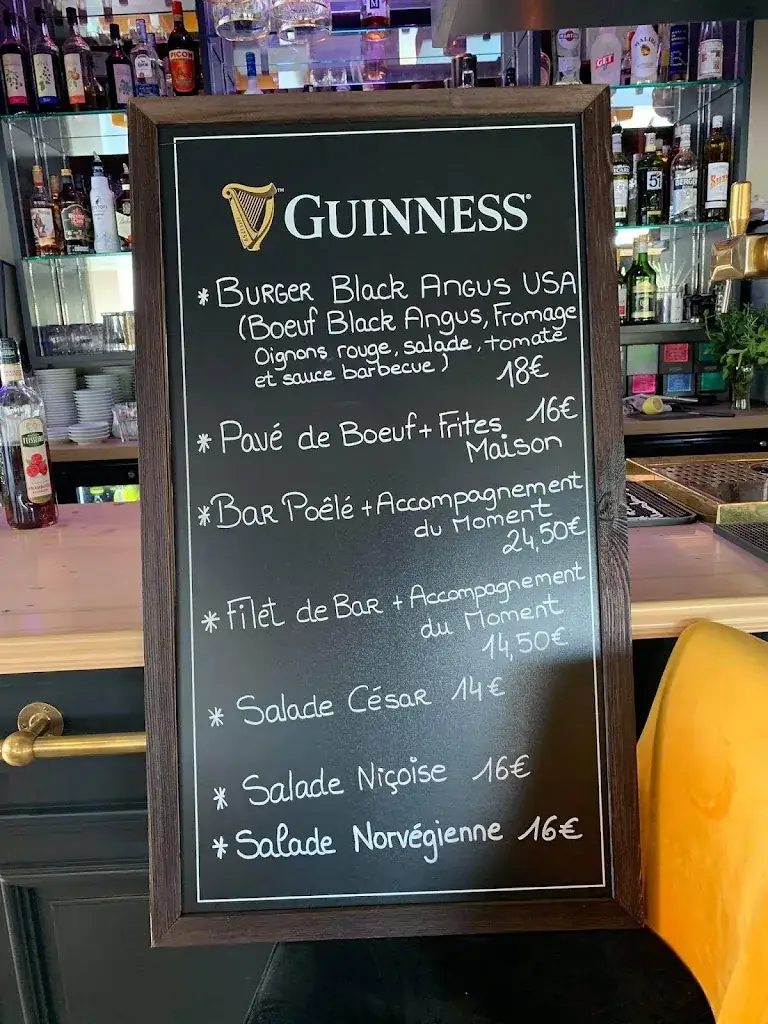 GUINNESS
* BURGER Black Angus USA
(Boeuf Black Angus, Fromage
Oignons rouge, salade, tomate
et sauce barbecue)
18€
* Pavé de Boeuf + Frites 16€
Maison
* Bar Poêlé + Accompagnement
du Moment
24,50€
* Filet de Bar + Accompagnement
du Moment
14,50€
* Salade César 14€
* Salade Niçoise 16€
* Salade Norvégienne 16€
PICON
GET
MALIBU
51
TEISSEIRE